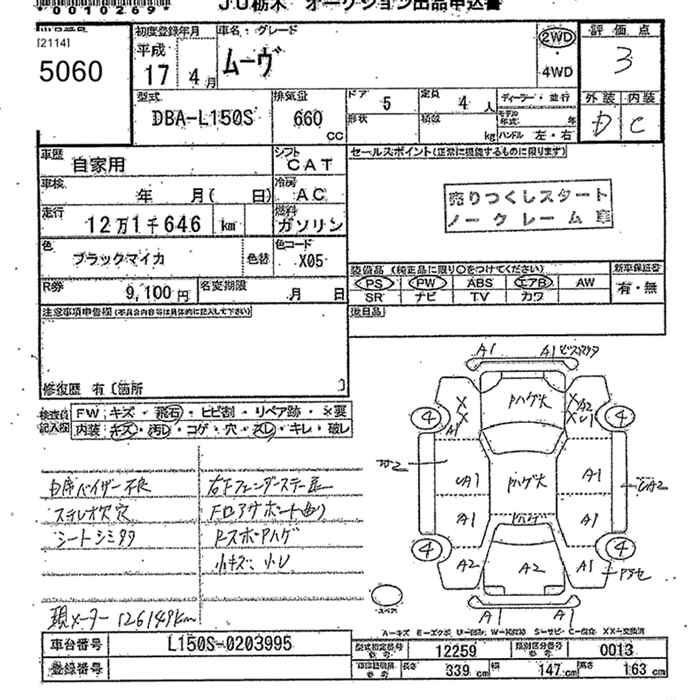 00102697
JU栃木 オークション出品申込書
[2114]
5060
初度登録年月
平成
17 4月
車名・グレード
ムーヴ
2WD
4WD
評価点
3
外装 内装
D C
型式
DBA-L150S
排気量
660
CC
ドア
5
定員
4人
形状
積数
kg
ディーラー・並行
モデル年式 年
ハンドル 左・右
車歴
自家用
シフト
CAT
車検
年 月( 日)
冷房
AC
走行
12万1千646 km
燃料
ガソリン
セールスポイント(正常に機能するものに限ります)
売りつくしスタート
ノークレーム車
色
ブラックマイカ
色替
色コード
X05
R券
9,100円
名変期限
月 日
装備品 (純正品に限り○をつけてください)
PS PW ABS エアB AW
SR ナビ TV カワ
新車保証書
有・無
後日品
注意事項申告欄(不具合内容等は具体的に記入して下さい)
修復歴 有〔箇所 〕
検査員記入欄
FW キズ・飛石・ヒビ割・リペア跡・×要
内装 キズ・汚レ・コゲ・穴・スレ・キレ・破レ
ステレオ欠 穴
シートシミ
小キズ 小し
現メーター 126149km
A1 A1
ハゲ大
X X A1
X A2
4 4
A1 A1
ハゲ大
A1 A1
ハゲ
4 4
A2 A2 A1
A1 A1
スペア
A-キズ E-エクボ U-凹み W-波打ち S-サビ C-腐食 XX-交換済
車台番号
L150S-0203995
登録番号
型式指定番号 参考
12259
類別区分番号 参考
0013
長さ 339cm 幅 147cm 高さ 163cm